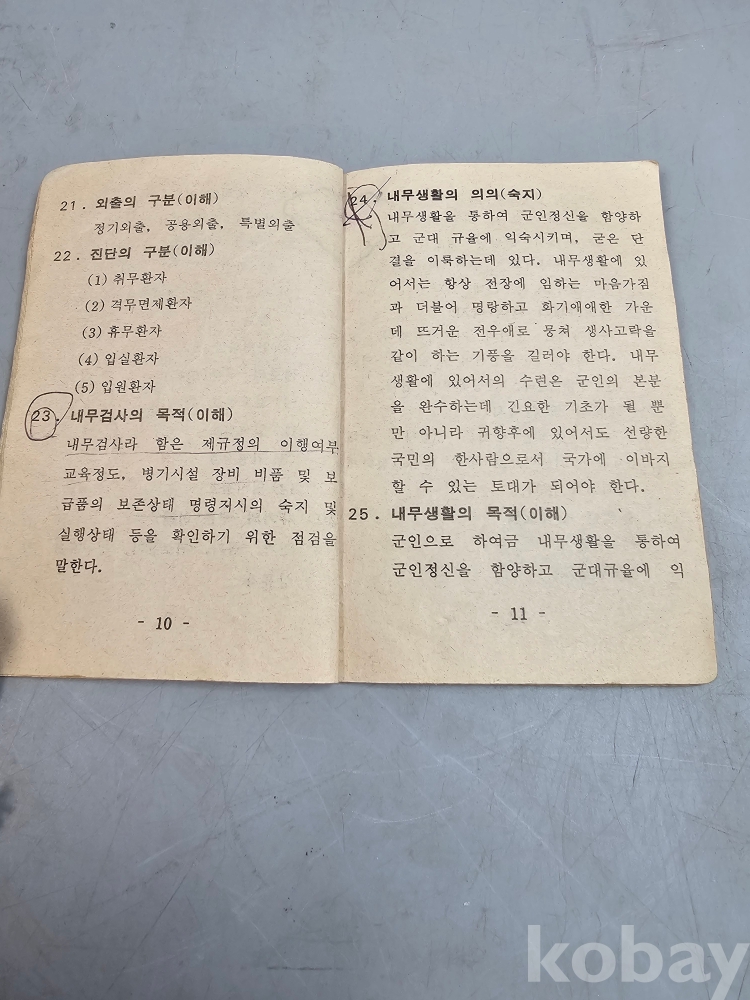 21. 외출의 구분(이해)
정기외출, 공용외출, 특별외출
22. 진단의 구분(이해)
(1) 취무환자
(2) 격무면제환자
(3) 휴무환자
(4) 입실환자
(5) 입원환자
23. 내무검사의 목적(이해)
내무검사라 함은 제규정의 이행여부
교육정도, 병기시설 장비 비품 및 보
급품의 보존상태 명령지시의 숙지 및
실행상태 등을 확인하기 위한 점검을
말한다.
- 10 -
24. 내무생활의 의의(숙지)
내무생활을 통하여 군인정신을 함양하
고 군대 규율에 익숙시키며, 굳은 단
결을 이룩하는데 있다. 내무생활에 있
어서는 항상 전장에 임하는 마음가짐
과 더불어 명랑하고 화기애애한 가운
데 뜨거운 전우애로 뭉쳐 생사고락을
같이 하는 기풍을 길러야 한다. 내무
생활에 있어서의 수련은 군인의 본분
을 완수하는데 긴요한 기초가 될 뿐
만 아니라 귀향후에 있어서도 선량한
국민의 한사람으로서 국가에 이바지
할 수 있는 토대가 되어야 한다.
25. 내무생활의 목적(이해)
군인으로 하여금 내무생활을 통하여
군인정신을 함양하고 군대규율에 익
- 11 -
kobay